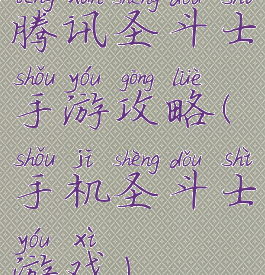 téng xùn shèng dòu shì
腾讯圣斗士
shǒu yóu gōng lüè
手游攻略(
shǒu jī shèng dǒu shì
手机圣斗士
yóu xì
游戏)